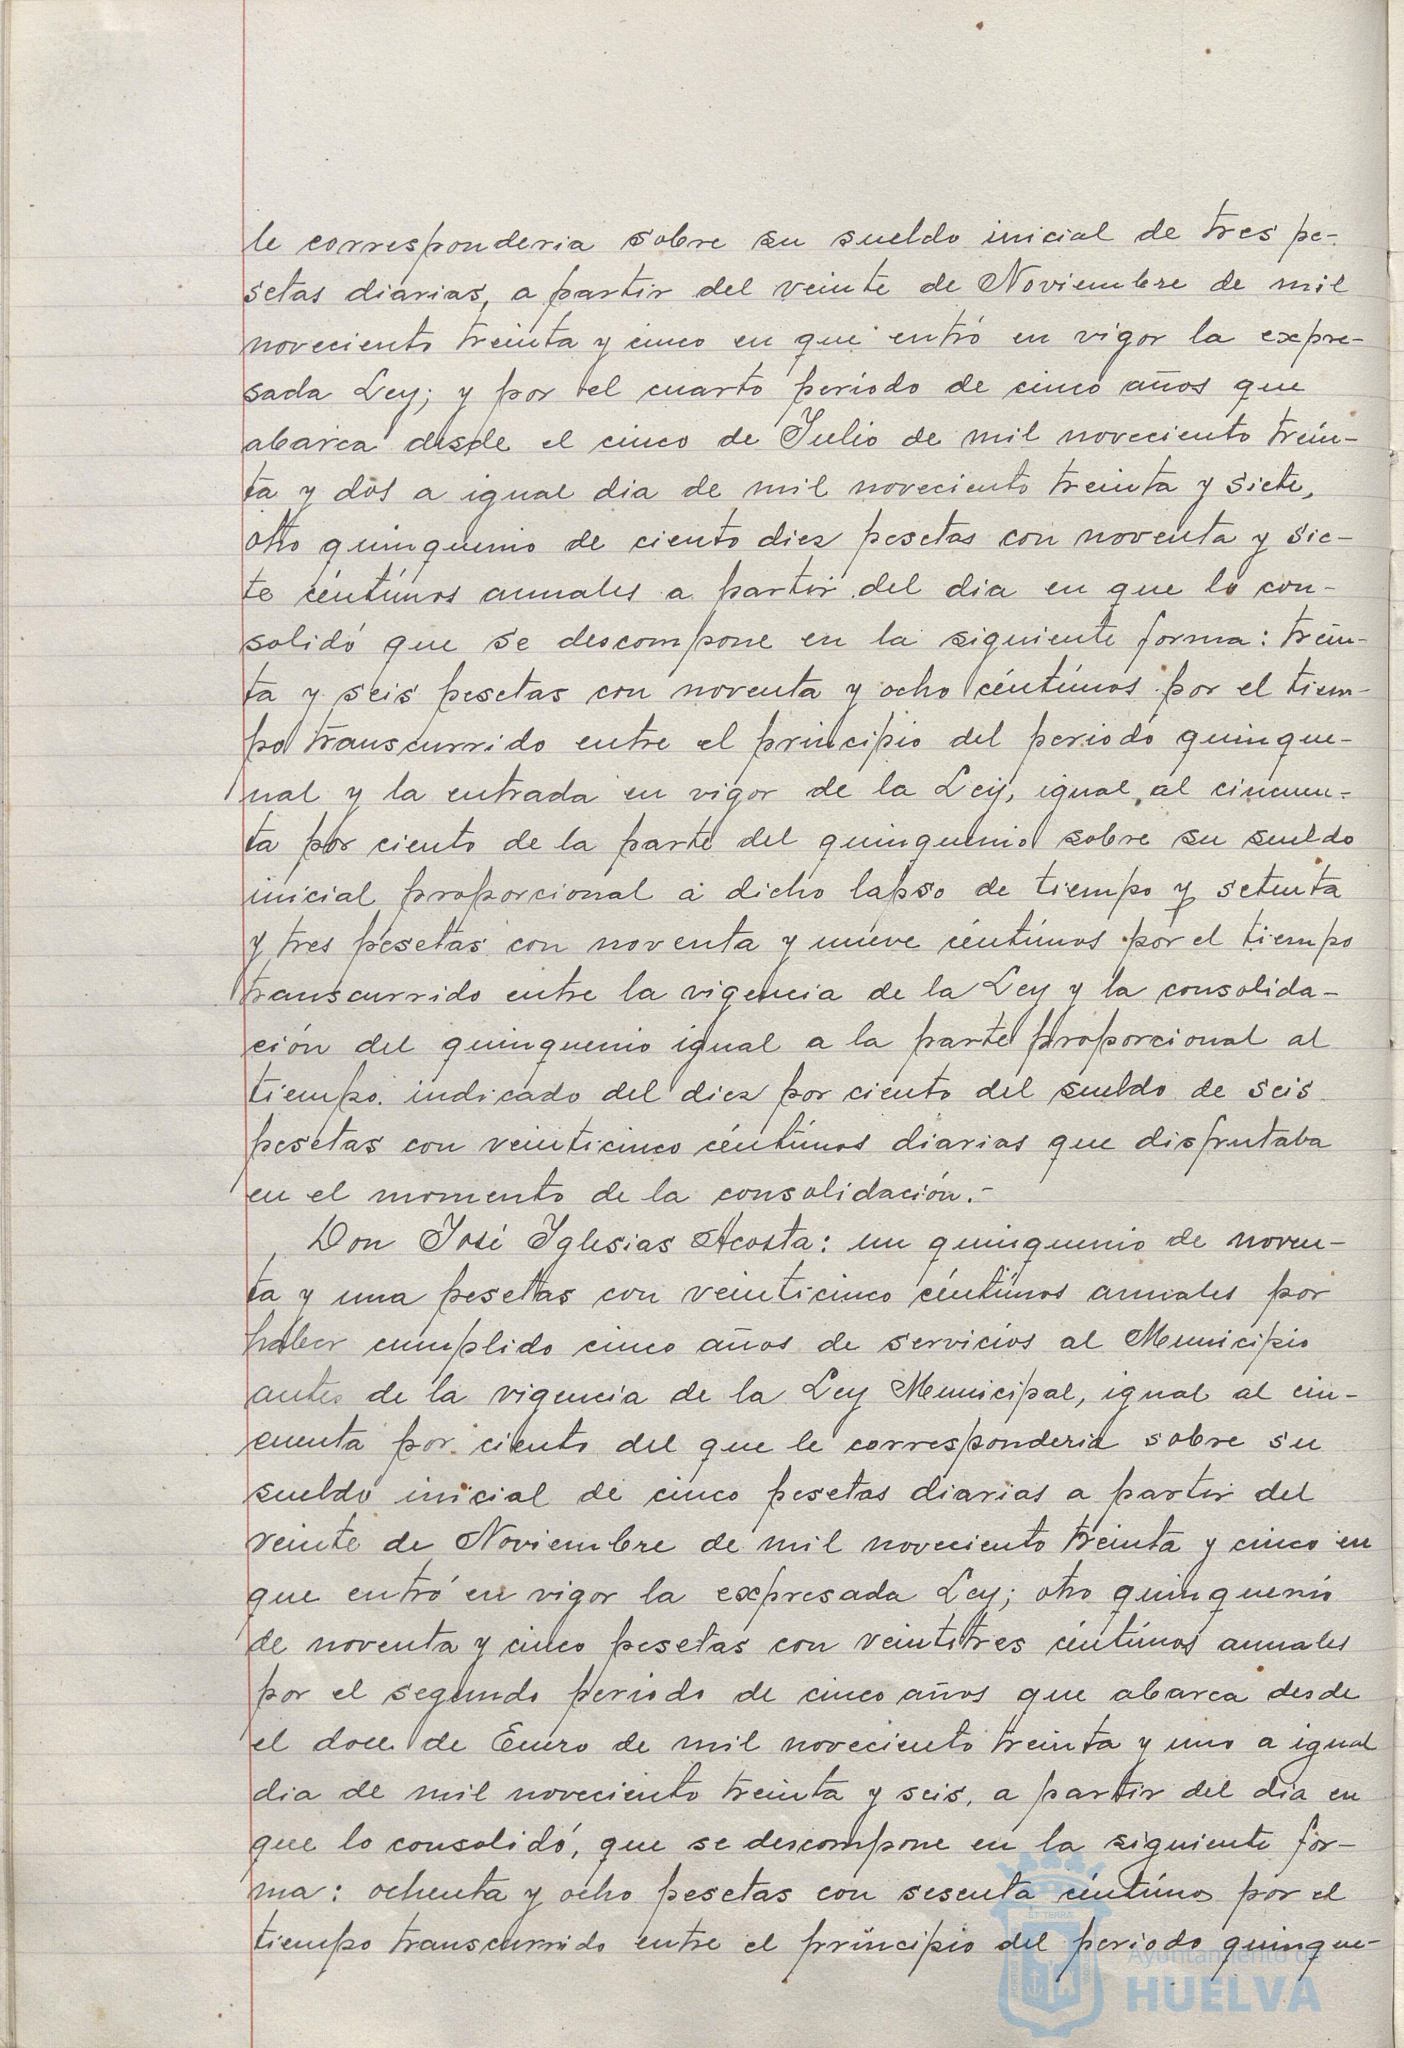 le corresponderia sobre su sueldo inicial de tres pe-
setas diarias, a partir del veinte de Noviembre de mil
noveciento treinta y cinco en que entró en vigor la expre-
sada Ley; y por el cuarto período de cinco años que
abarca desde el cinco de Julio de mil noveciento trein-
ta y dos a igual dia de mil noveciento treinta y siete,
otro quinquenio de ciento diez pesetas con noventa y sie-
te céntimos anuales a partir del dia en que lo con-
solidó que se descompone en la siguiente forma: trein-
ta y seis pesetas con noventa y ocho céntimos por el tiem-
po transcurrido entre el principio del periodo quinque-
nal y la entrada en vigor de la Ley, igual al cincuen-
ta por ciento de la parte del quinquenio sobre su sueldo
inicial proporcional a dicho lapso de tiempo y setenta
y tres pesetas con noventa y nueve céntimos por el tiempo
transcurrido entre la vigencia de la Ley y la consolida-
ción del quinquenio igual a la parte proporcional al
tiempo indicado del diez por ciento del sueldo de seis
pesetas con veinticinco céntimos diarias que disfrutaba
en el momento de la consolidación.-
Don José Iglesias Acosta: un quinquenio de noven-
ta y una pesetas con veinticinco céntimos anuales por
haber cumplido cinco años de servicios al Municipio
antes de la vigencia de la Ley Municipal, igual al cin-
cuenta por ciento del que le corresponderia sobre su
sueldo inicial de cinco pesetas diarias a partir del
veinte de Noviembre de mil noveciento treinta y cinco en
que entró en vigor la expresada Ley; otro quinquenio
de noventa y cinco pesetas con veintitres céntimos anuales
por el segundo periodo de cinco años que abarca desde
el doce de Enero de mil noveciento treinta y uno a igual
dia de mil noveciento treinta y seis, a partir del dia en
que lo consolidó, que se descompone en la siguiente for-
ma: ochenta y ocho pesetas con sesenta céntimos por el
tiempo transcurrido entre el principio del periodo quinque-
Ayuntamiento de
HUELVA